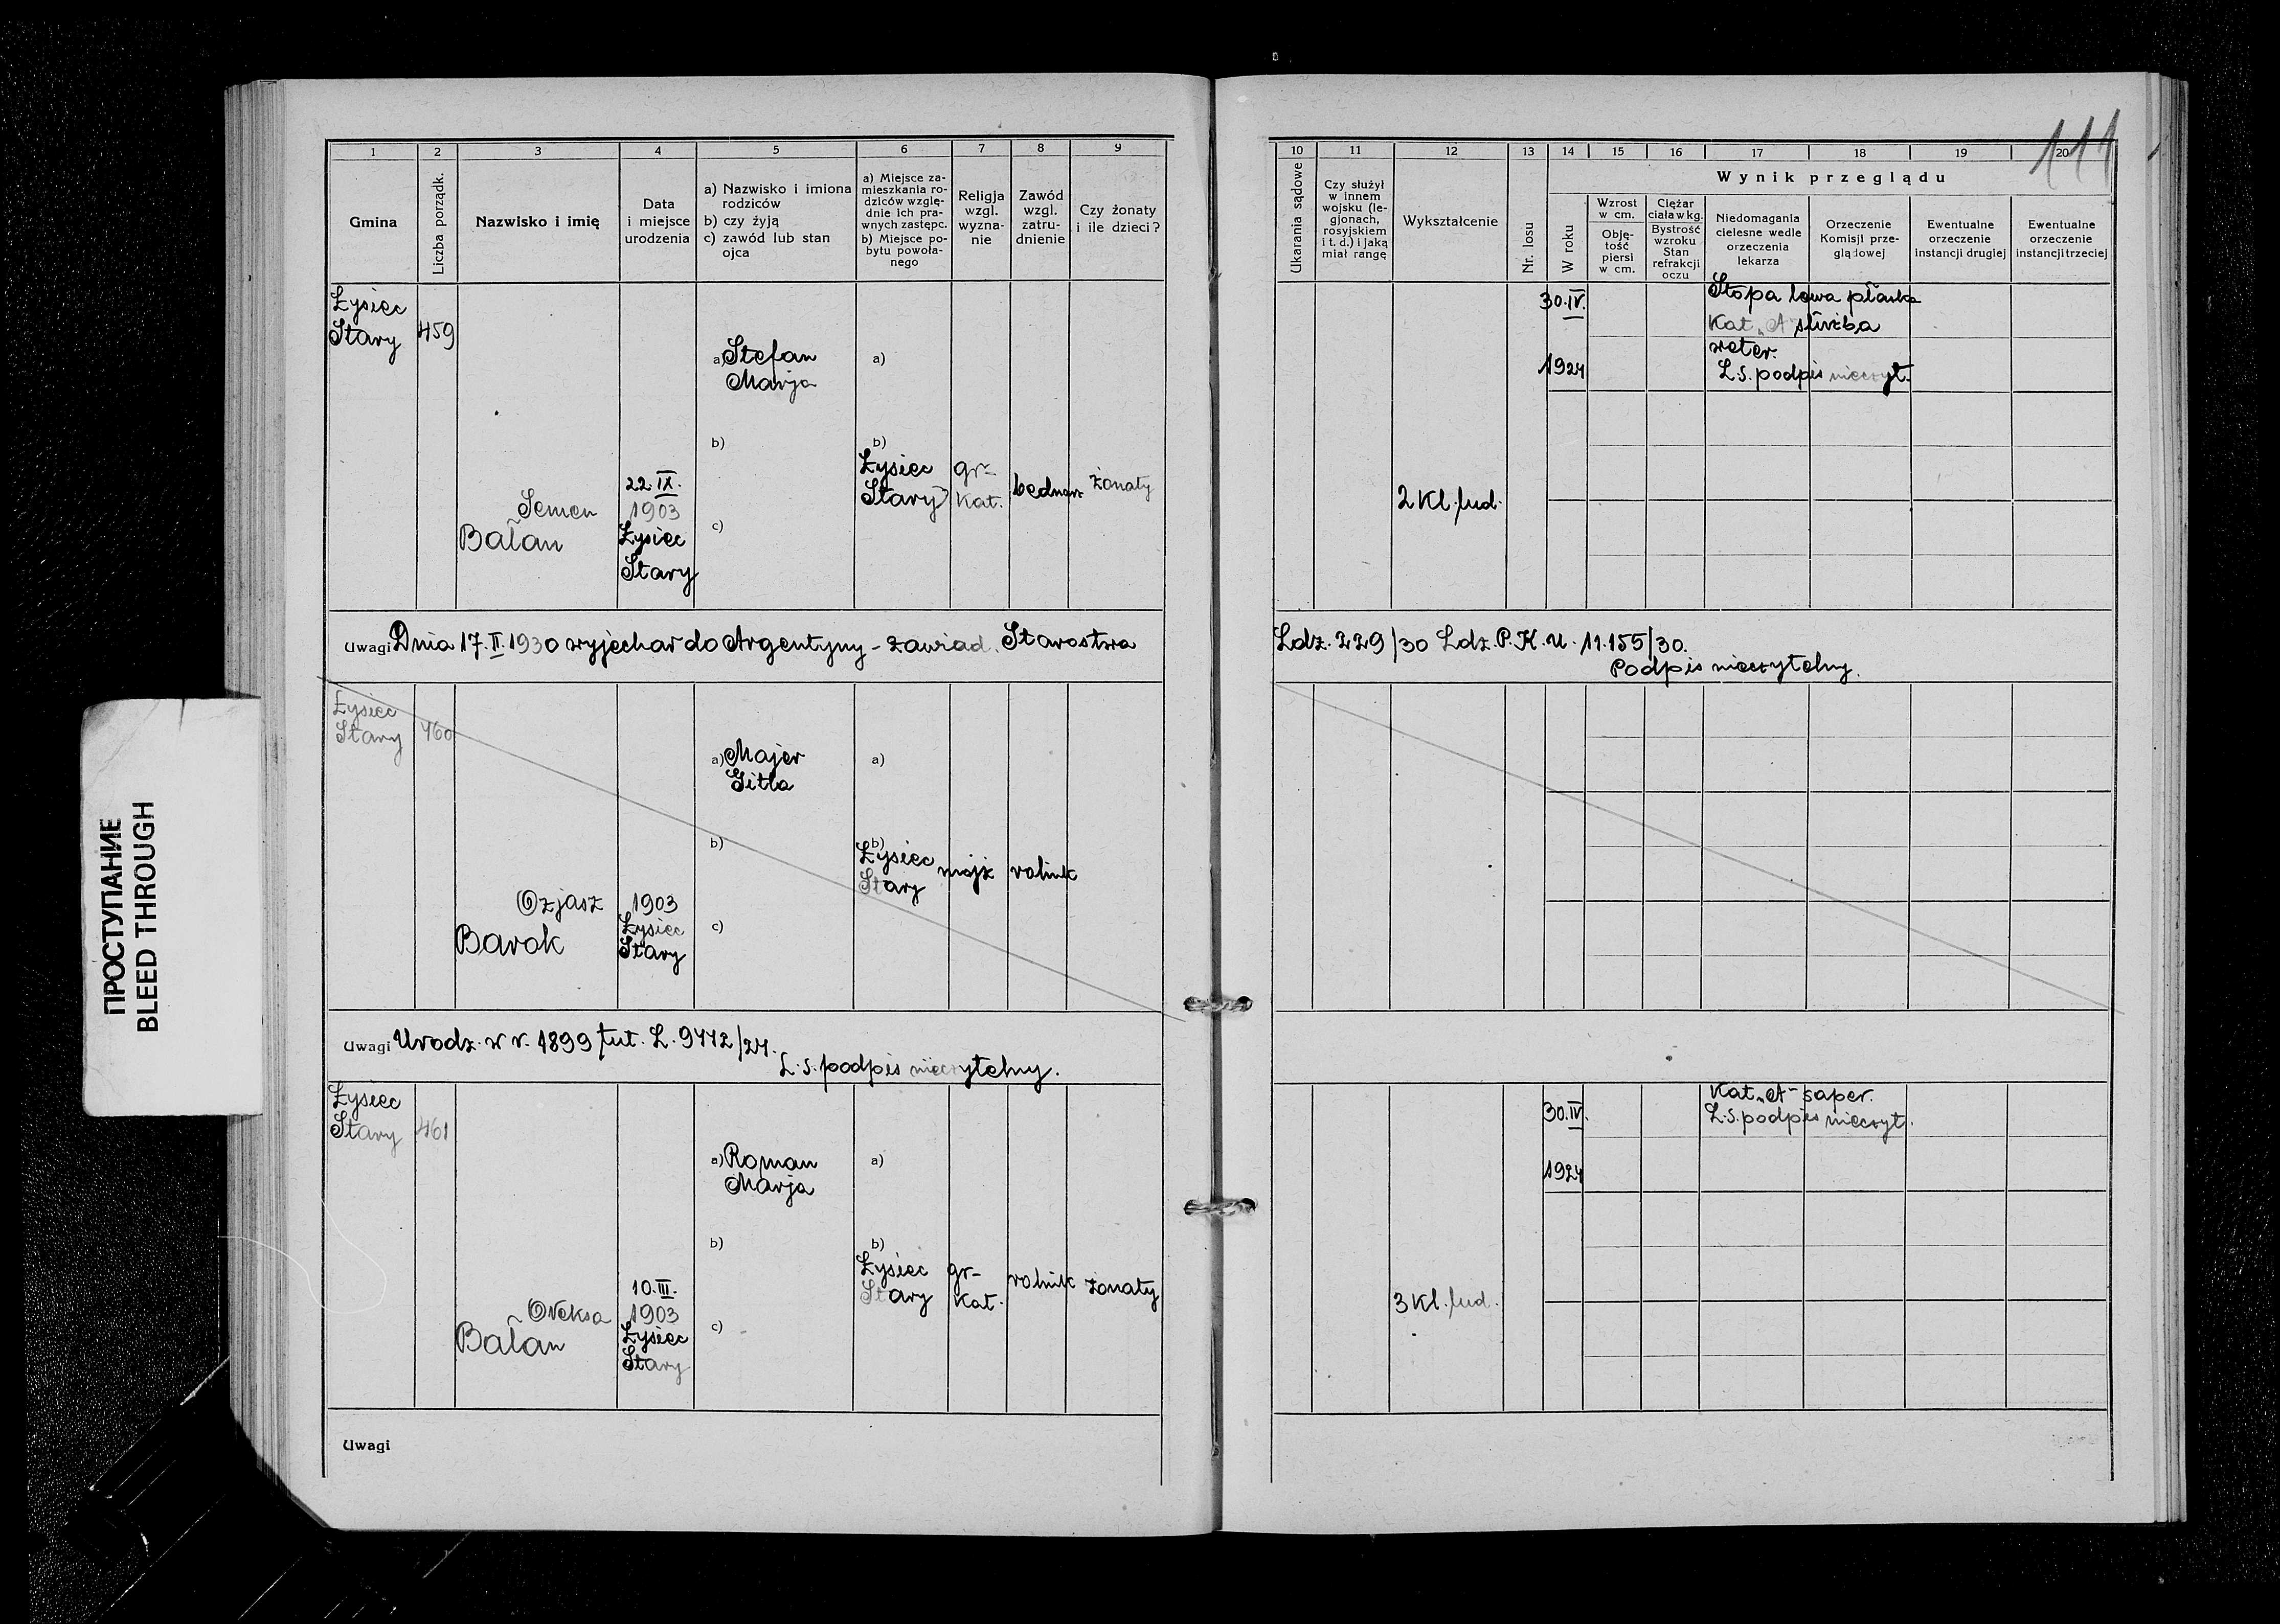 111
1 2 3 4 5 6 7 8 9
Gmina
Liczba porządk.
Nazwisko i imię
Data
i miejsce
urodzenia
a) Nazwisko i imiona
rodziców
b) czy żyją
c) zawód lub stan
ojca
a) Miejsce za-
mieszkania ro-
dziców wzglę-
dnie ich pra-
wnych zastępc.
b) Miejsce po-
bytu powoła-
nego
Religja
wzgl.
wyzna-
nie
Zawód
wzgl.
zatru-
dnienie
Czy żonaty
i ile dzieci?
10 11 12 13 14 15 16 17 18 19 20
Ukarania sądowe
Czy służył
w innem
wojsku (le-
gjonach,
rosyjskiem
i t. d.) i jaką
miał rangę
Wykształcenie
Nr. losu
Wynik przeglądu
W roku
Wzrost
w cm.
Obję-
tość
piersi
w cm.
Ciężar
ciała w kg.
Bystrość
wzroku
Stan
refrakcji
oczu
Niedomagania
cielesne wedle
orzeczenia
lekarza
Orzeczenie
Komisji prze-
glądowej
Ewentualne
orzeczenie
instancji drugiej
Ewentualne
orzeczenie
instancji trzeciej
Łysiec
Stary
459
Semen
Bałan
22.IX.
1903
Łysiec
Stary
a) Stefan
Marja
b)
c)
a)
b)
Łysiec
Stary
gr-
kat.
bednarz
żonaty
2 Kl. lud.
30.IV.
1924
Stopa lewa płaska
Kat „A" służba
weter.
L.S. podpis nieczyt.
Uwagi Dnia 17.II.1930 wyjechał do Argentyny - zawiad. Starostwa
Ldz. 229/30 Ldz. P.K.U. 11.155/30.
Podpis nieczytelny.
Łysiec
Stary
460
Ozjasz
Barok
1903
Łysiec
Stary
a) Majer
Gitla
b)
c)
a)
b)
Łysiec
Stary
mojż
rolnik
Uwagi Urodz. w r. 1899 tut. L. 9442/24.
L.S. podpis nieczytelny.
Łysiec
Stary
461
Ołeksa
Bałan
10.III.
1903
Łysiec
Stary
a) Roman
Marja
b)
c)
a)
b)
Łysiec
Stary
gr-
kat.
rolnik
żonaty
3 Kl. lud.
30.IV.
1924
Kat „A" saper.
L.S. podpis nieczyt.
Uwagi
ПРОСТУПАНИЕ
BLEED THROUGH